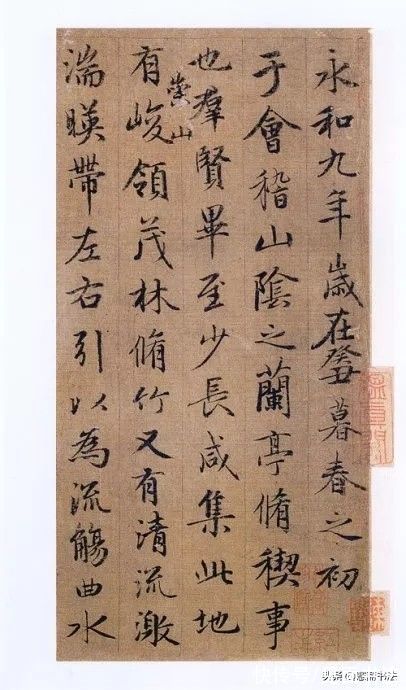 永和九年歲在癸丑暮春之初
于會稽山陰之蘭亭脩稧事
也羣賢畢至少長咸集此地
有崇山峻領茂林脩竹又有清流激
湍暎帶左右引以為流觴曲水
头条@惠濡书法